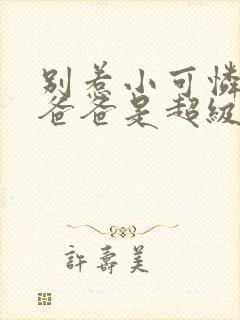 别惹小可憐
爸爸是超級
許壽美